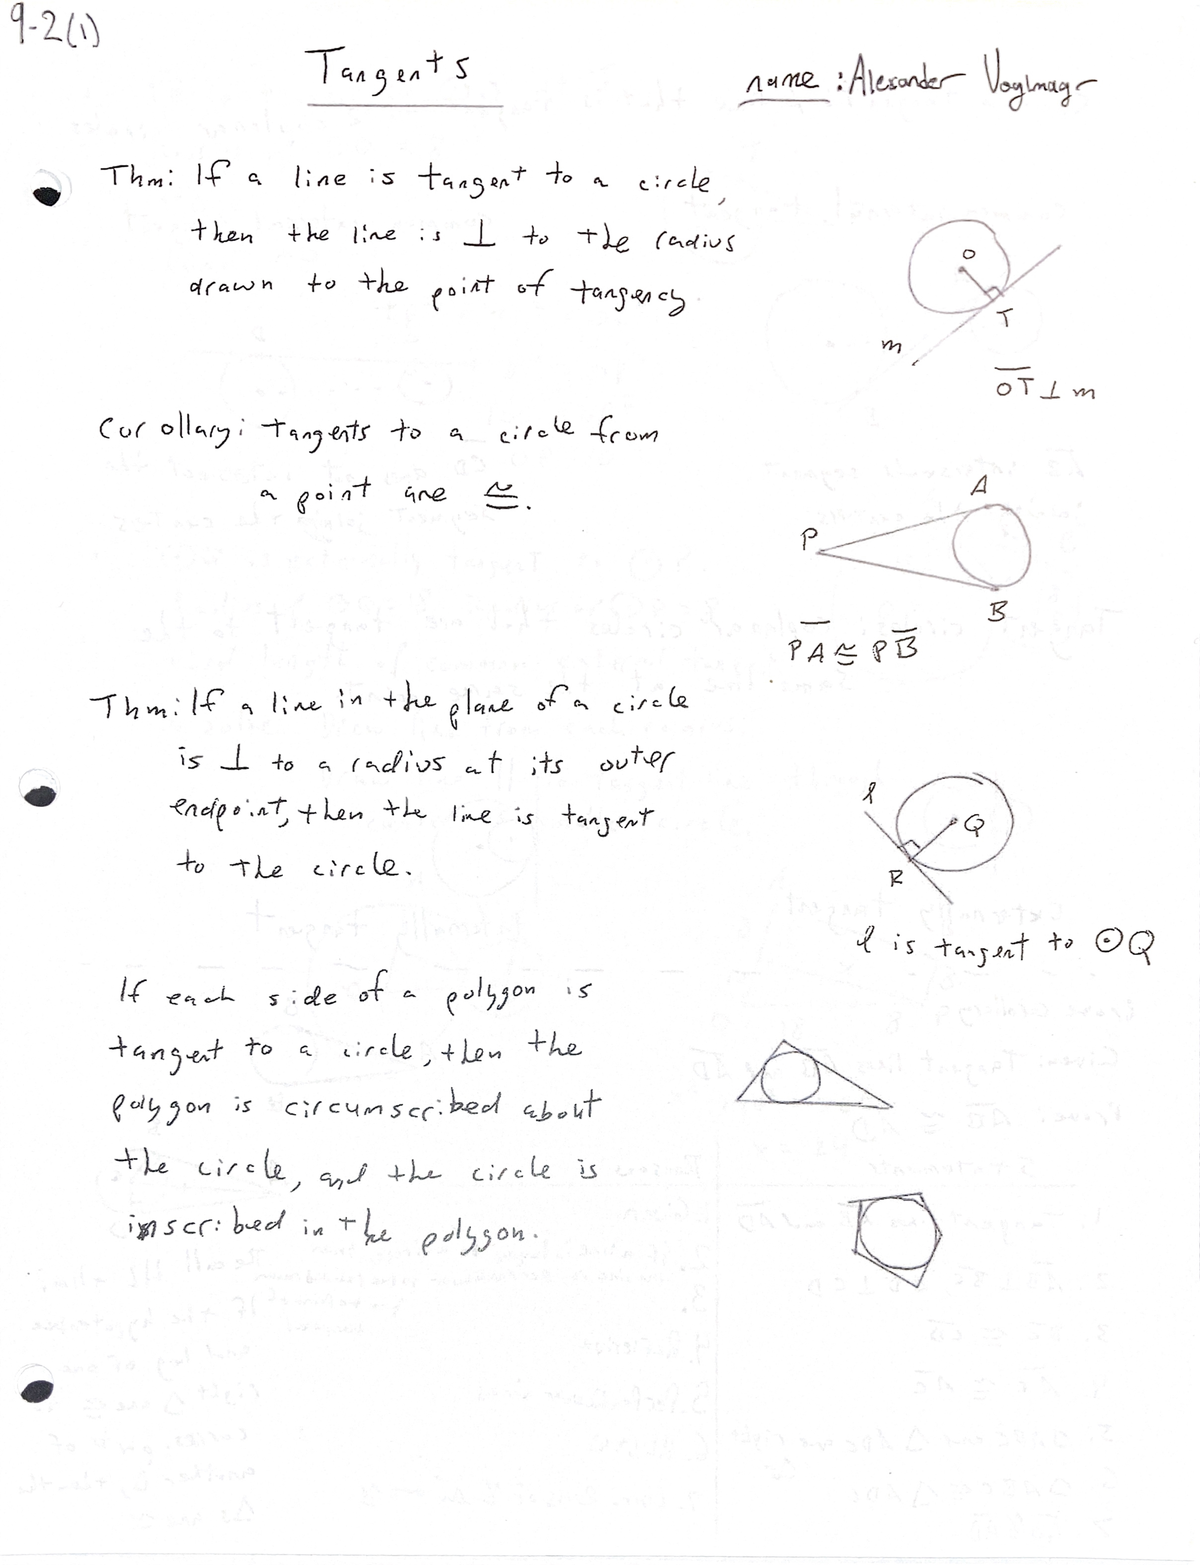 9-2(1)
Tangents
name: Alexander
Thm: If a line is tangent to a circle,
then the line is ⊥ to the radius
drawn to the point of tangency.
O
T
m
OT ⊥ m
Corollary: tangents to a circle from
a point are ≅.
A
P
B
PA ≅ PB
Thm: If a line in the plane of a circle
is ⊥ to a radius at its outer
endpoint, then the line is tangent
to the circle.
l
Q
R
l is tangent to ⊙Q
If each side of a polygon is
tangent to a circle, then the
polygon is circumscribed about
the circle, and the circle is
inscribed in the polygon.